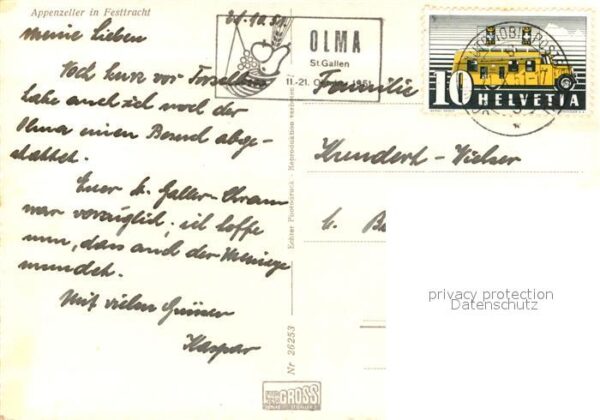 Appenzeller in Festtracht
21.10.51.
Meine Lieben
Noch kurz vor
habe auch ich noch der
Olma einen Besuch abge-
stattet.
Euer St. Galler-
war vorzüglich, ich hoffe
nun, dass auch der Meinige
mundet.
Mit vielen Grüssen
Kaspar
OLMA
St. Gallen
11.-21. Oktober 1951
10 HELVETIA
Familie
Kundert-
privacy protection
Datenschutz
Echter Photodruck - Reproduktion verboten
Nr 26253
GROSS